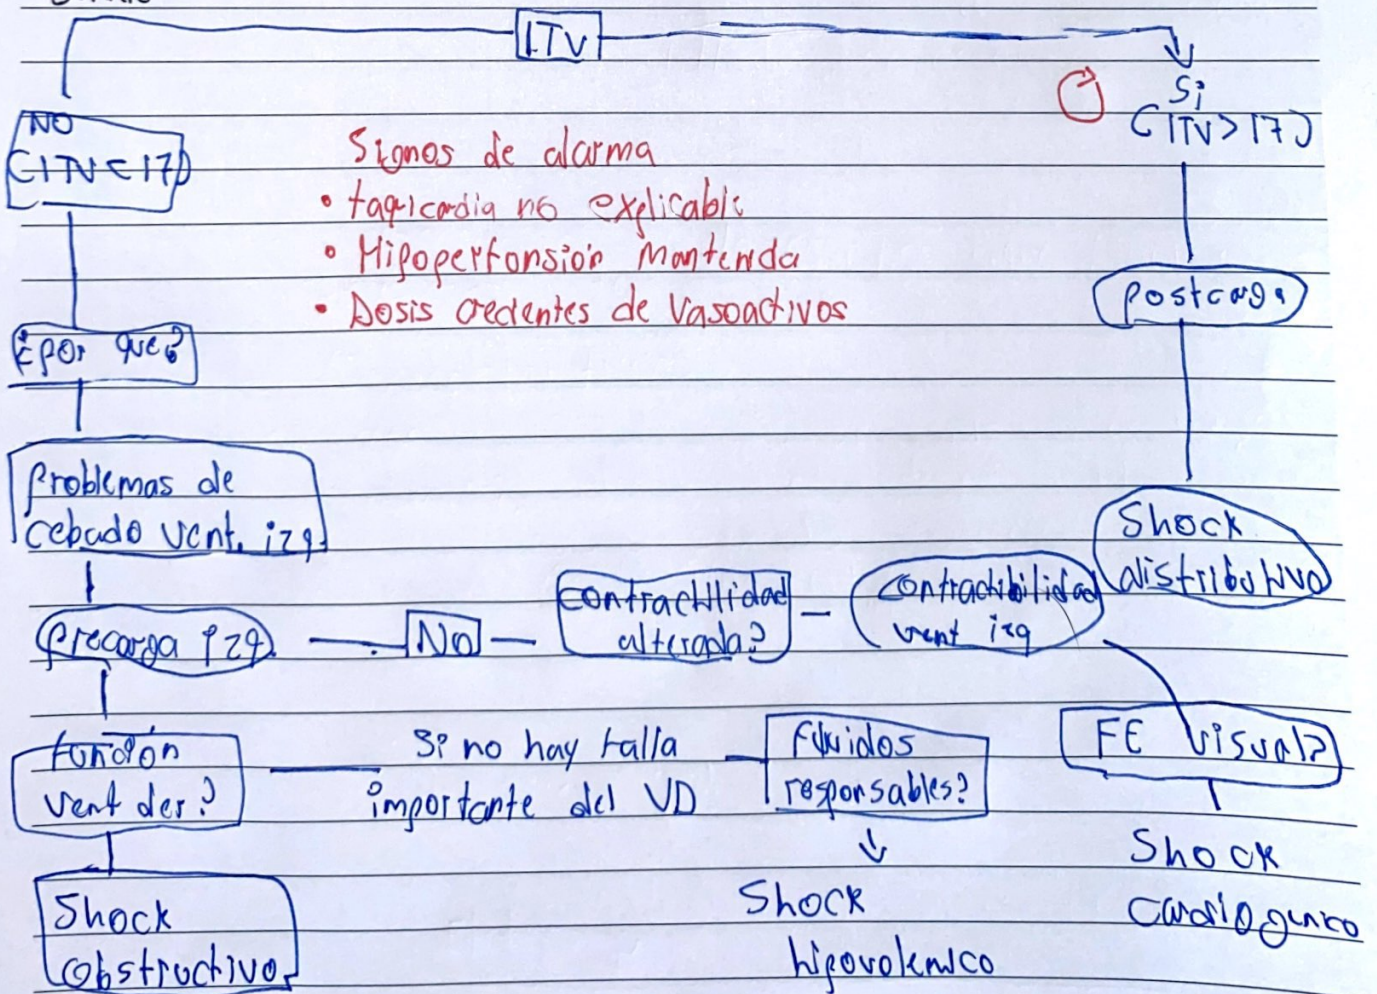 ITV
NO
(ITV < 17)
Si
(ITV > 17)
Signos de alarma
• taquicardia no explicable
• Hipopertonsión Mantenida
• Dosis crecientes de Vasoactivos
postcarga
¿por que?
Problemas de
cebado vent. izq.
Shock
distributivo
precarga izq.
No
Contractilidad
alterada?
contractibilidad
vent izq
función
vent der?
Si no hay falla
importante del VD
fluidos
responsables?
FE visual?
Shock
obstructivo
Shock
hipovolemico
Shock
cardiogenico